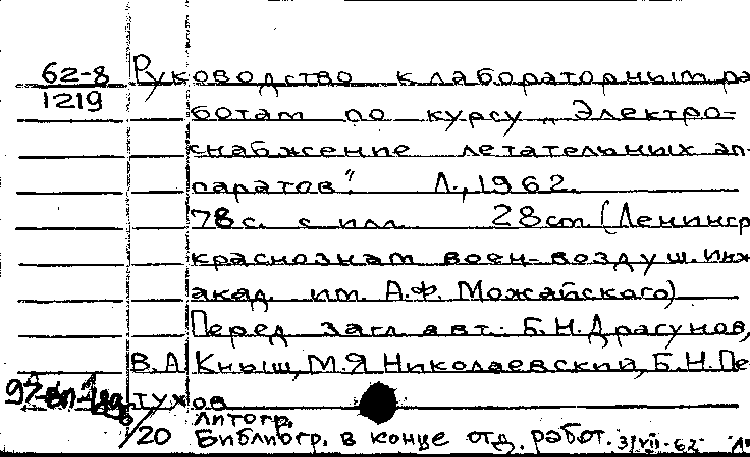 62-8 Руководство к лабораторным ра
1219 ботам по курсу „Электро-
снабжение летательных ап-
паратов". Л., 1962.
78 с. с илл. 28 cm. (Ленингр
краснознам. воен-воздуш. инж
акад. им. А.Ф. Можайского)
Перед загл. авт.: Б.Н. Драгунов,
В.А. Кныш, М.Я. Николаевский, Б.Н. Пе
тухов
литогр.
/20 Библиогр. в конце отд. работ. 3/VII-62